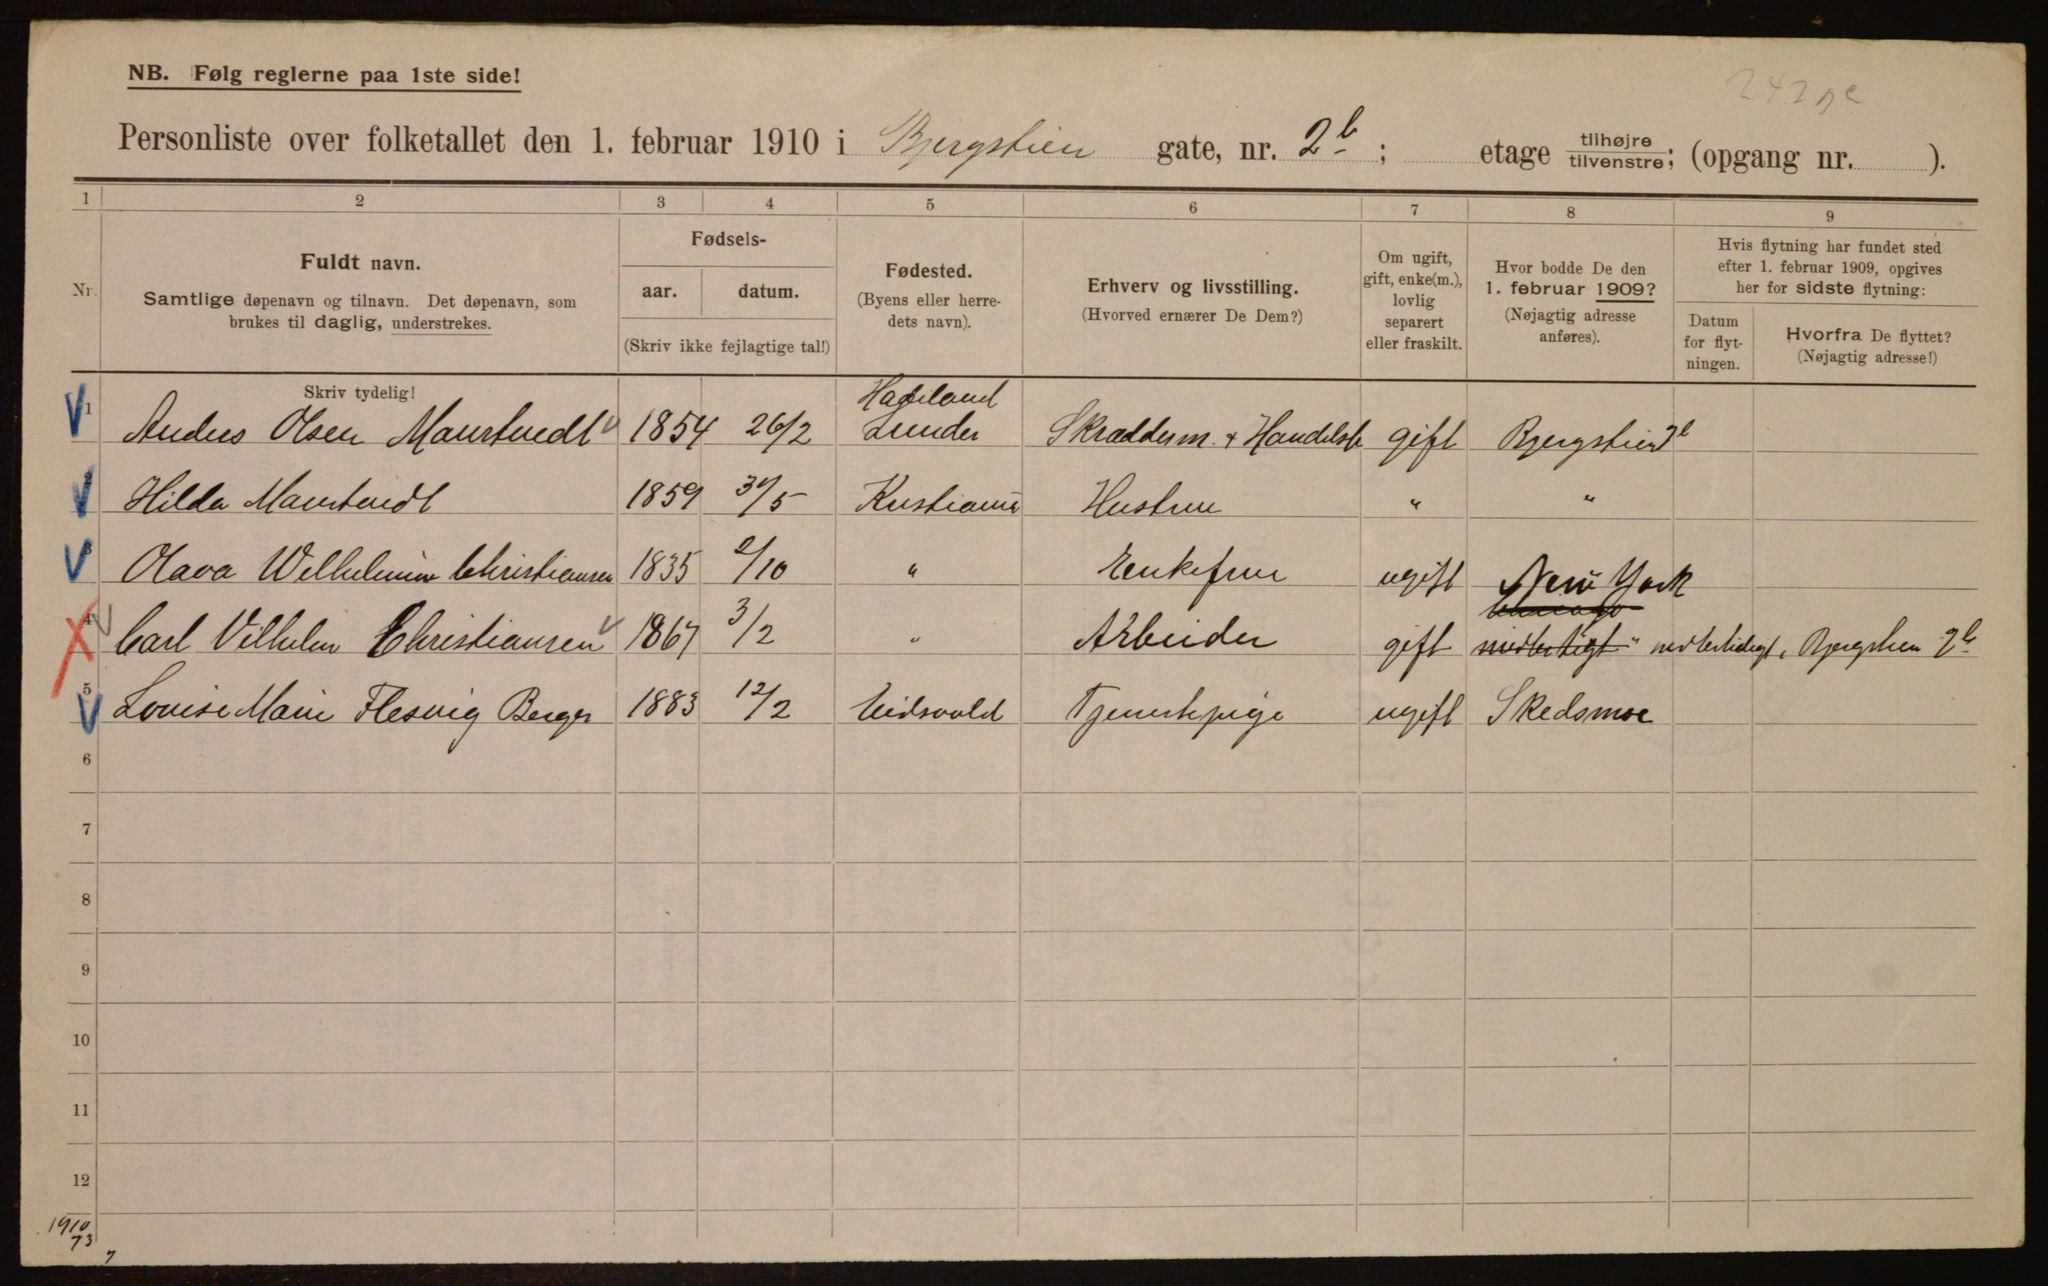 NB. Følg reglerne paa 1ste side!
Personliste over folketallet den 1. februar 1910 i Bjergstien gate, nr. 2b ; etage tilhøjre tilvenstre; (opgang nr. ).
1 2 3 4 5 6 7 8 9
Nr. Fuldt navn. Samtlige døpenavn og tilnavn. Det døpenavn, som brukes til daglig, understrekes.
Fødsels-
aar. datum.
(Skriv ikke fejlagtige tal!)
Fødested.
(Byens eller herre-
dets navn).
Erhverv og livsstilling.
(Hvorved ernærer De Dem?)
Om ugift,
gift, enke(m.),
lovlig
separert
eller fraskilt.
Hvor bodde De den
1. februar 1909?
(Nøjagtig adresse
anføres).
Hvis flytning har fundet sted
efter 1. februar 1909, opgives
her for sidste flytning:
Datum
for flyt-
ningen.
Hvorfra De flyttet?
(Nøjagtig adresse!)
Skriv tydelig!
Hadeland
1 Anders Olsen 1854 26/2 Lunder Skræddderm. + Handelsb gift Bjergstien 2b
2 Hilda 1859 /5 Kristiania Hustru " "
3 Olava Wilhelmine Christiansen 1835 2/10 " Enkefrue ugift New York
4 Carl Vilhelm Christiansen 1867 3/2 " Arbeider gift midlertidigt, Bjergstien 2b
5 Louise Marie Flesvig Berger 1883 12/2 Eidsvold Tjenestepige ugift Skedsmoe
6
7
8
9
10
11
12
1910
73